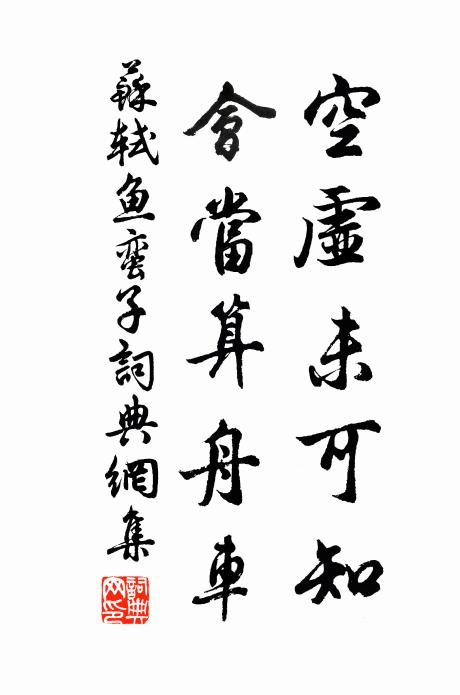 空虛未可知
會當算舟車
蘇軾魚蠻子詞典網集
詞典網印